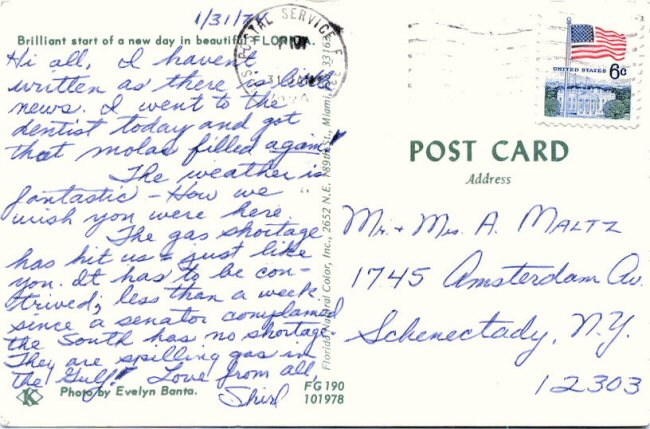 1/31/74
Brilliant start of a new day in beautiful FLORIDA.
Hi all, I haven't
written as there is little
news. I went to the
dentist today and got
that molar filled again!
The weather is
fantastic - How we
wish you were here
The gas shortage
has hit us - just like
you. It has to be con-
trived; less than a week
since a senator complained
the South has no shortage.
They are spilling gas in
the Gulf! Love from all,
Shirl
Photo by Evelyn Banta.
FG190
101978
K
Florida Natural Color, Inc., 2652 N.E. 189th St., Miami, 33162
U.S. POSTAL SERVICE
PM
31 JAN
UNITED STATES
6c
POST CARD
Address
Mr. + Mrs. A. MALTZ
1745 Amsterdam Av.
Schenectady, N.Y.
12303